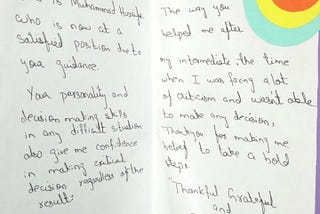 is Muhammad Huzaifa
Who is now at a
satisfied position due to
your guidance.
Your personality and
decision making skills
in any difficult situation
also give me confidence
in making critical
decision regardless of the
result.
The way you
helped me after
my intermediate, the time
when I was facing a lot
of criticism and wasn't able
to make any decision,
Thankyou for making me
belief to take a bold
steps.
"Thankful Grateful
and